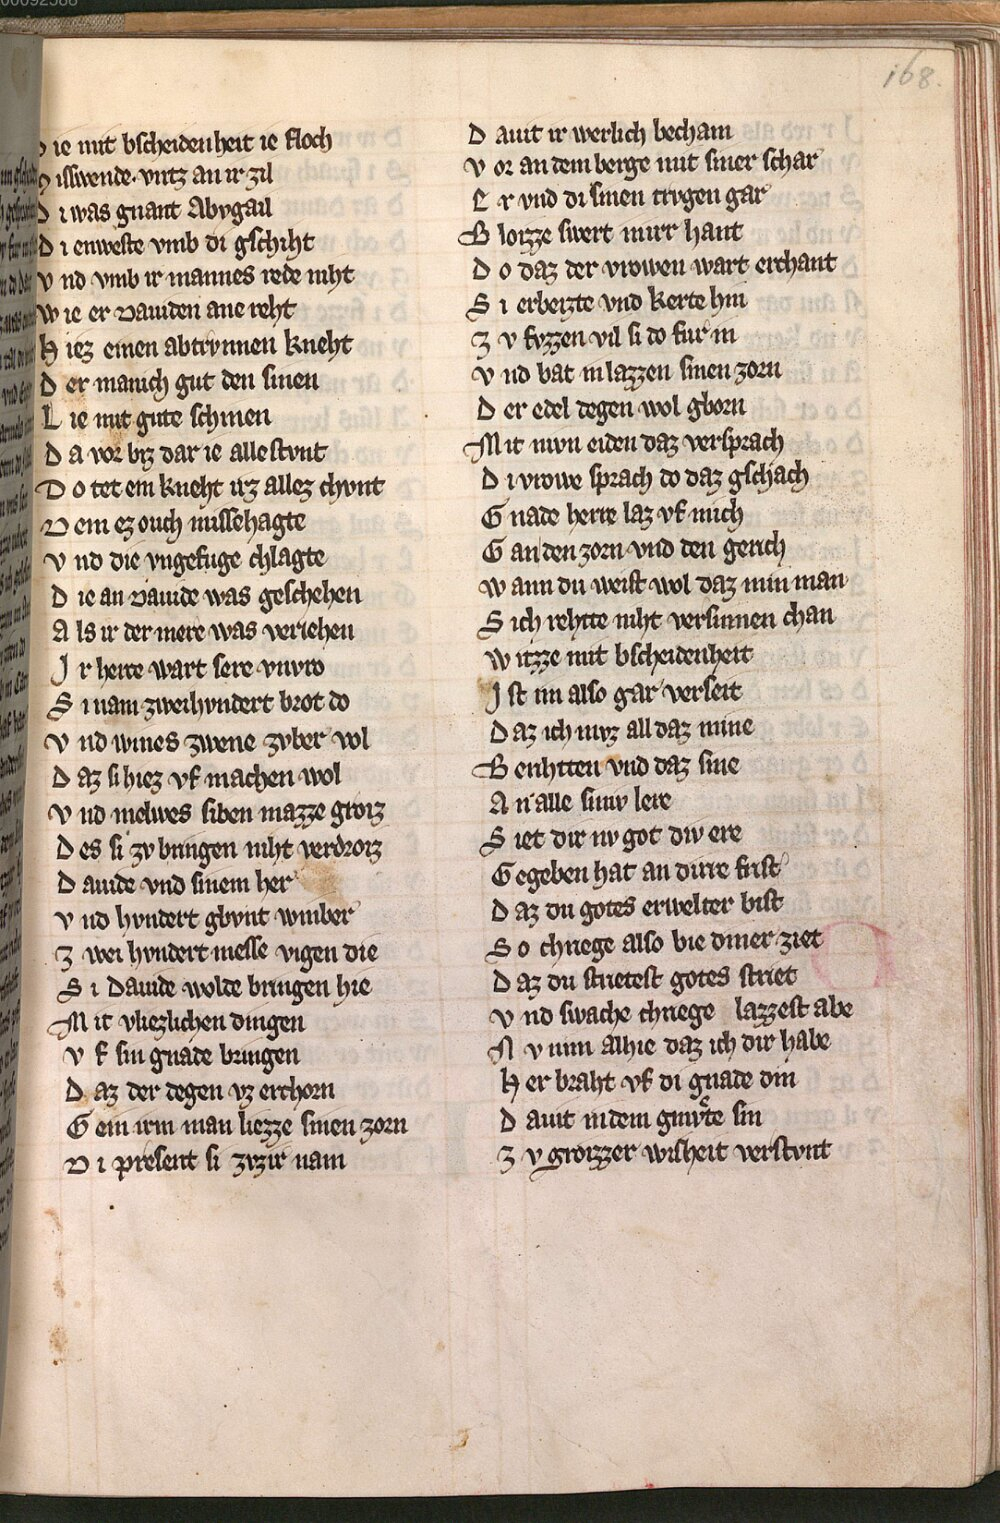 168.
ie mit bscheidenheit ie floch
isswende. vntz an ir zil
D i was gnant Abygail
D i enweste vmb di gschiht
V nd vmb ir mannes rede niht
W ie er Dauiden ane reht
H iez einen abtrvnnen kneht
D er manich gut den sinen
L ie mit gute schinen
D a vor biz dar ie allestvnt
D o tet em kneht irz allez chvnt
D em ez ouch missehagte
V nd die vngefuge chlagte
D ie an Dauide was geschehen
A ls ir der mere was veriehen
I r herre wart sere vnvro
S i nam zweihvndert brot do
V nd wines zwene zvber vol
D az si hiez vf machen wol
V nd melwes siben mazze groiz
D es si zv bringen niht verdroiz
D auide vnd sinem her
V nd hvndert gbvnt winber
Z wei hvndert messe vigen die
S i Dauide wolde bringen hie
M it vliezlichen dingen
V f sin gnade bringen
D az der degen vz erchorn
G ein irm man liezze sinen zorn
D i present si zvzir nam
D auit ir werlich becham
V or an dem berge mit siner schar
E r vnd di sinen trvgen gar
B loizze swert in irr hant
D o daz der vrowen wart erchant
S i erbeizte vnd kerte hin
Z v fvzzen vil si do fur in
V nd bat in lazzen sinen zorn
D er edel degen wol gborn
M it nivn eiden daz versprach
D i vrowe sprach do daz gschach
G nade herre laz vf mich
G an den zorn vnd den gerich
W ann du weist wol daz min man
S ich rehtte niht versinnen chan
W itzze mit bscheidenheit
I st im also gar verseit
D az ich mvz all daz mine
B erihtten vnd daz sine
A n alle sinw lere
S iet dir nv got div ere
G egeben hat an dirre frist
D az du gotes erwelter bist
S o chriege also bie diner ziet
D az du strietest gotes striet
V nd swache chriege lazzest abe
N v nim alhie daz ich dir habe
H er braht vf di gnade din
D auit in dem gmvte sin
Z v groizzer wisheit verstvnt